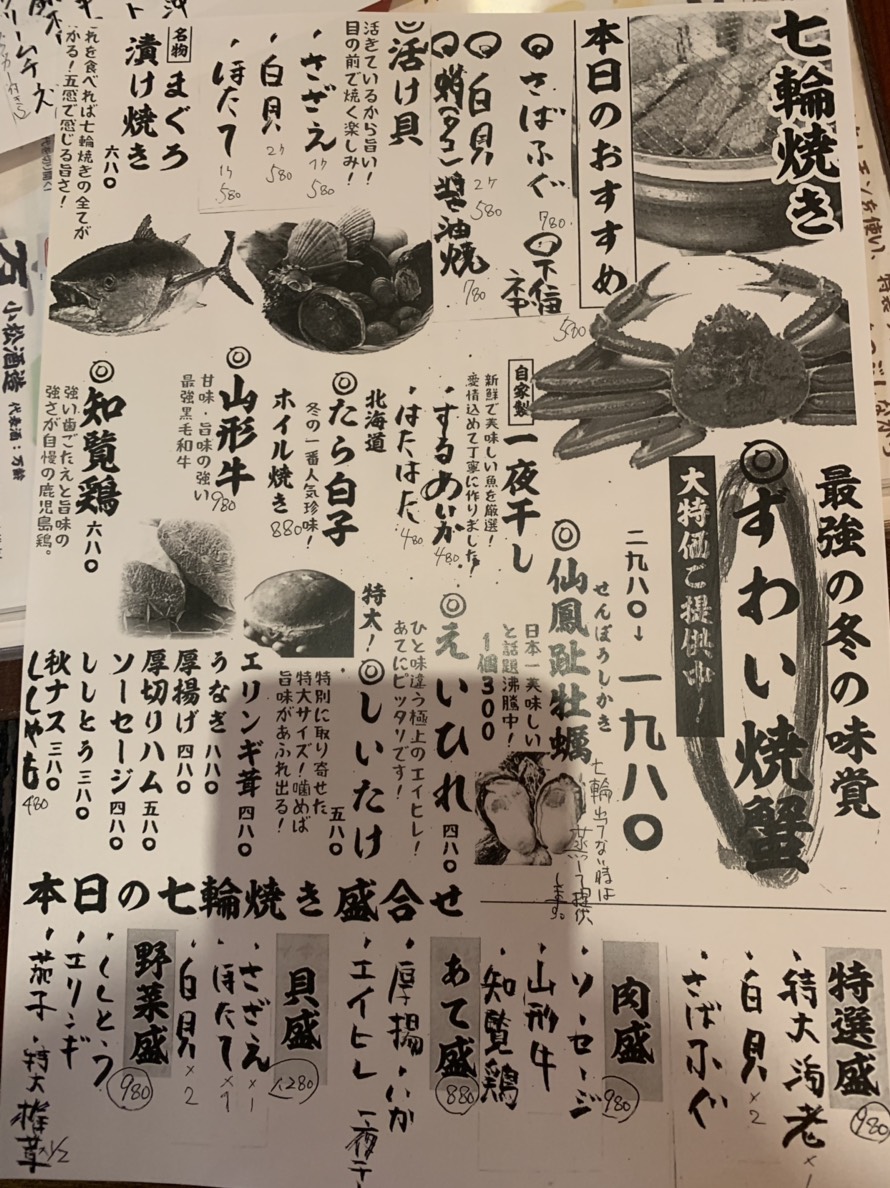 七輪焼き
本日のおすすめ
◎さばふぐ 780
◎下信
580
◎白貝 2ケ 580
◎蛸(タコ)醤油焼 780
◎活け貝
活きているから旨い!
目の前で焼く楽しみ!
・さざえ 1ケ 580
・白貝 2ケ 580
・ほたて 1ケ 580
名物
まぐろ
漬け焼き 六八〇
これを食べれば七輪焼きの全てが
分かる!五感で感じる旨さ!
最強の冬の味覚
◎ずわい焼蟹
大特価ご提供中!
二九八〇→一九八〇
せんぽうしかき
◎仙鳳趾牡蠣
日本一美味しい
と話題沸騰中!
1個300
七輪出てない時は
蒸して提供
します。
自家製
一夜干し
新鮮で美味しい魚を厳選!
愛情込めて丁寧に作りました!
・するめいか 480
・はたはた 480
北海道
◎たら白子
冬の一番人気珍味!
ホイル焼き 880
◎山形牛 980
甘味・旨味の強い
最強黒毛和牛
◎知覧鶏 六八〇
強い歯ごたえと旨味の
強さが自慢の鹿児島鶏。
◎えいひれ 四八〇
ひと味違う極上のエイヒレ!
あてにピッタリです!
特大!
◎しいたけ 五八〇
特別に取り寄せた
特大サイズ!噛めば
旨味があふれ出る!
エリンギ茸 四八〇
うなぎ 八八〇
厚揚げ 四八〇
厚切りハム 五八〇
ソーセージ 四八〇
ししとう 三八〇
秋ナス 三八〇
ししゃも 480
本日の七輪焼き盛合せ
特選盛 980
・特大海老×1
・白貝×2
・さばふぐ
肉盛 980
・ソーセージ
・山形牛
・知覧鶏
あて盛 880
・厚揚・いか
・エイヒレ 一夜干
貝盛 1280
・さざえ×1
・ほたて×1
・白貝×2
野菜盛 980
・ししとう
・エリンギ
・茄子・特大椎茸×1/2
小松酒造 代表酒:万齢